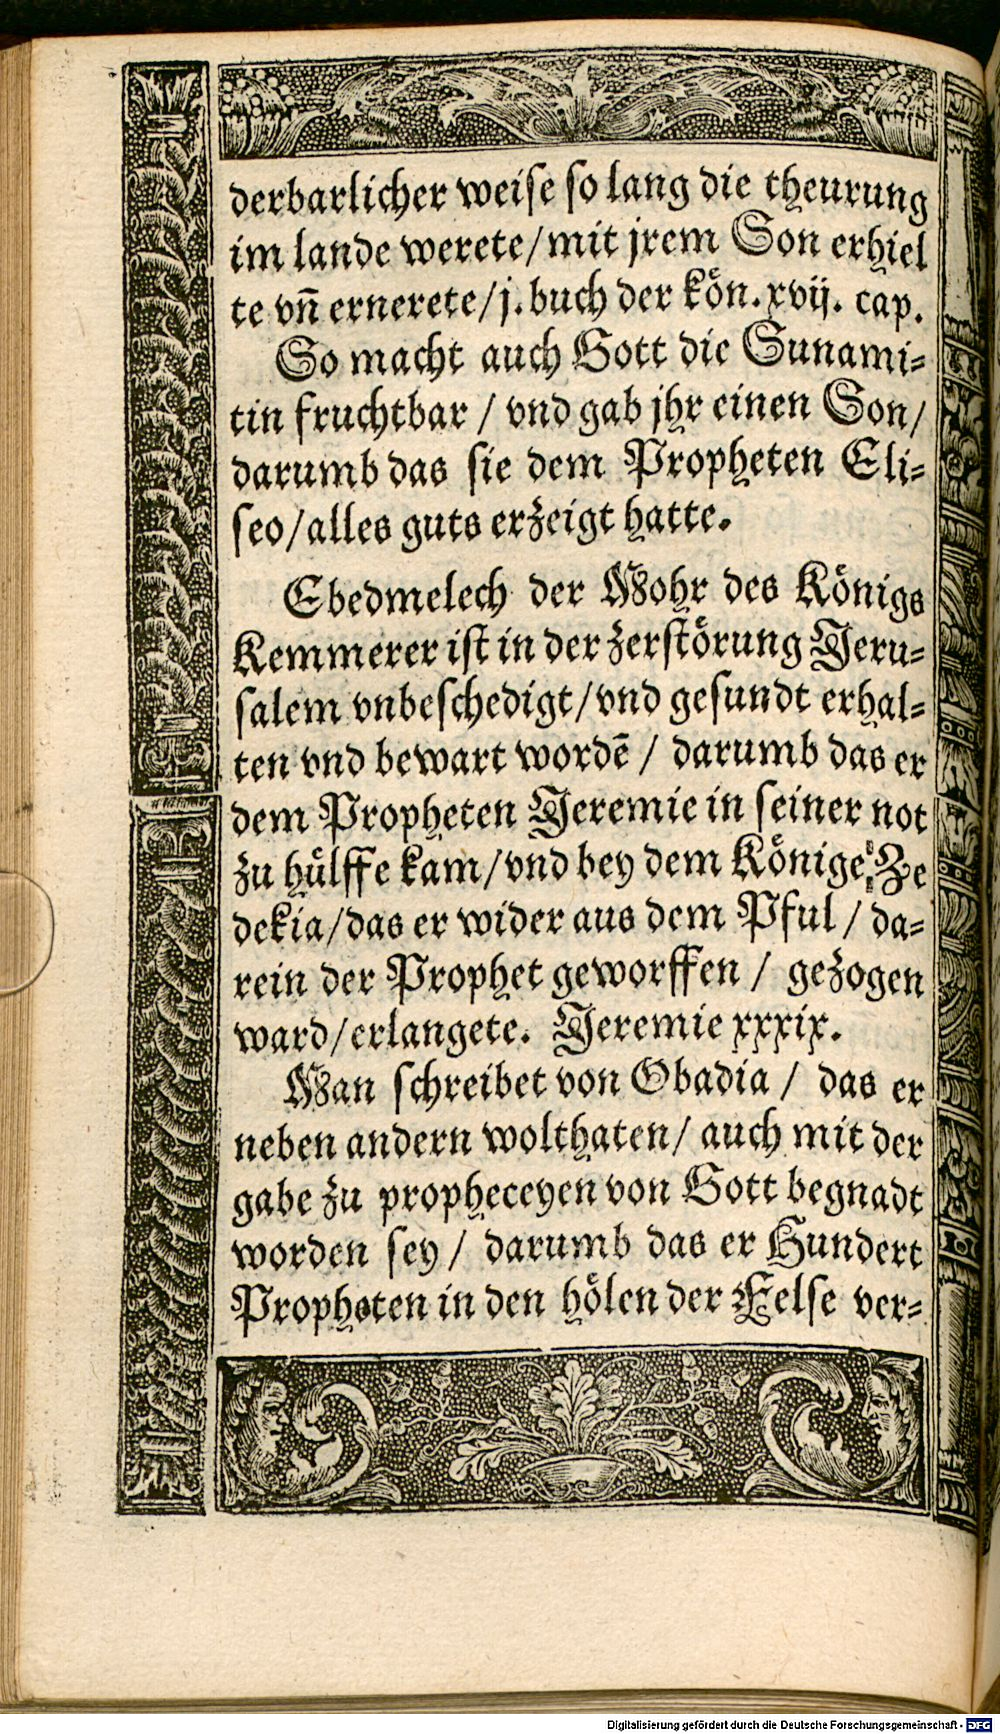 derbarlicher weise so lang die theurung
im lande werete/mit jrem Son erhiel
te vn̄ ernerete/j. buch der kön. xvij. cap.
So macht auch Gott die Sunami-
tin fruchtbar / vnd gab jhr einen Son/
darumb das sie dem Propheten Eli-
seo/alles guts erzeigt hatte.
Ebedmelech der Mohr des Königs
Kemmerer ist in der zerstörung Jeru-
salem vnbeschedigt/vnd gesundt erhal-
ten vnd bewart wordē / darumb das er
dem Propheten Jeremie in seiner not
zu hülffe kam/vnd bey dem Könige Ze
dekia/das er wider aus dem Pful / da-
rein der Prophet geworffen / gezogen
ward/erlangete. Jeremie xxxix.
Man schreibet von Obadia / das er
neben andern wolthaten/ auch mit der
gabe zu propheceyen von Gott begnadt
worden sey / darumb das er Hundert
Propheten in den hölen der Felse ver-
Digitalisierung gefördert durch die Deutsche Forschungsgemeinschaft - DFG